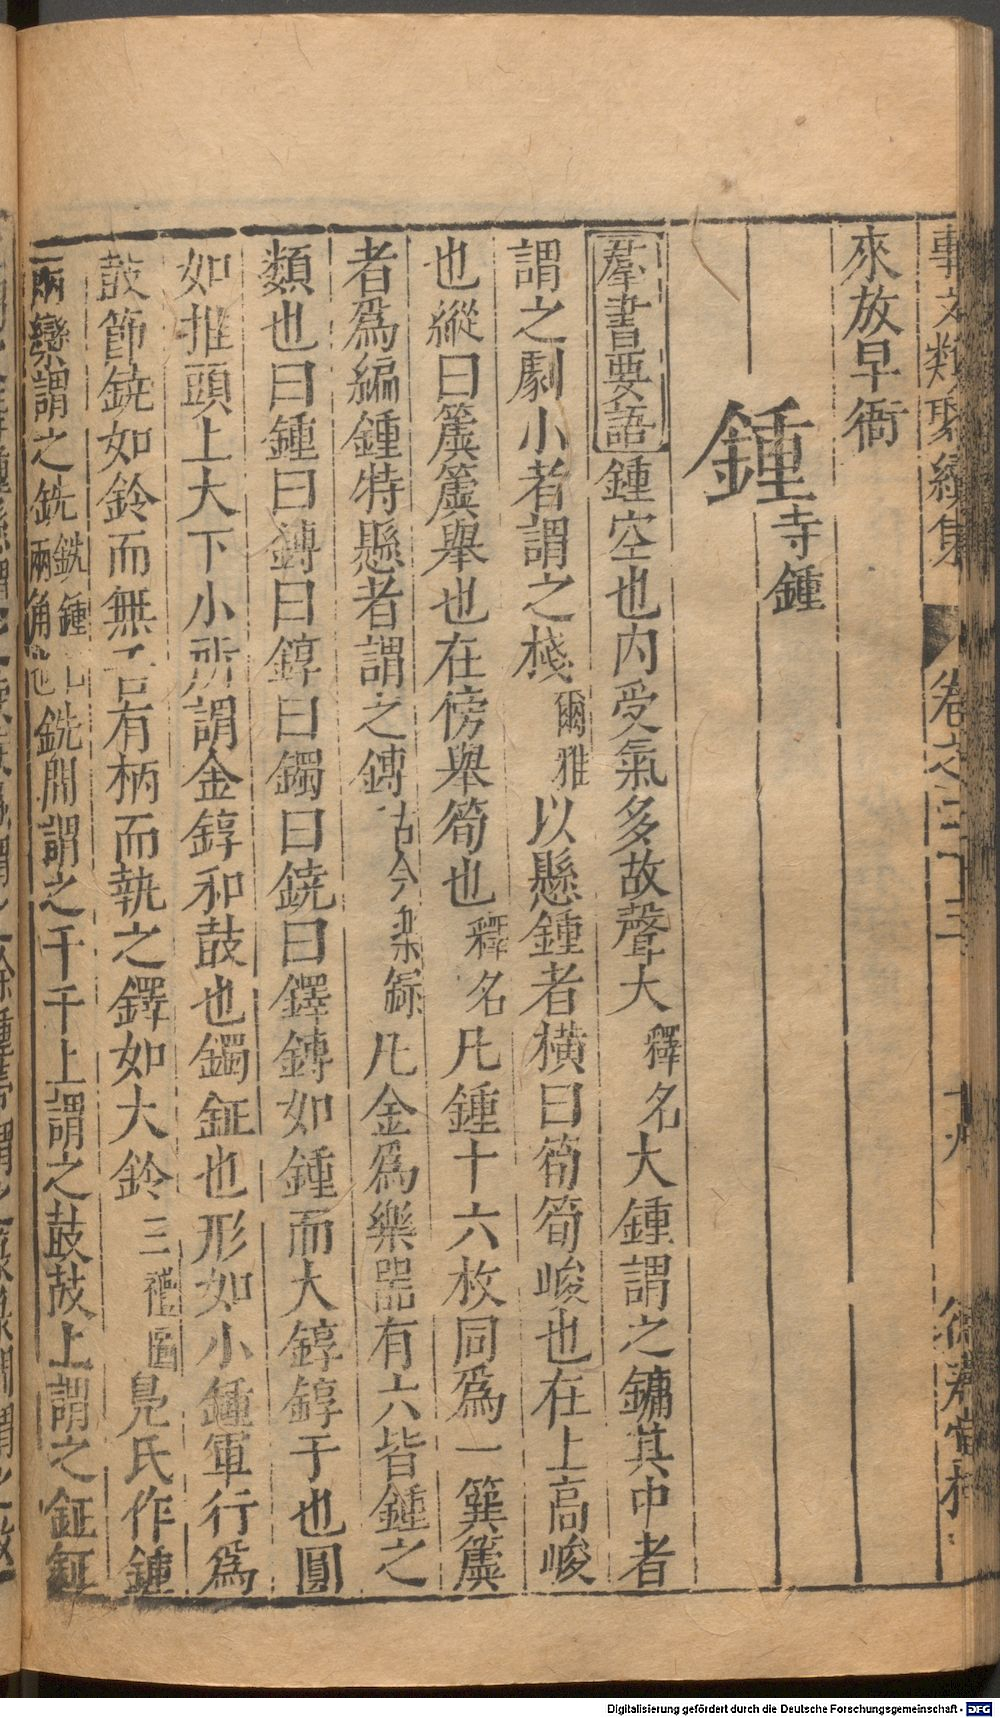 事文類聚續集 卷之二十三 十九 德壽堂梓
來放早衙
鍾 寺鍾
羣書要語 鍾空也内受氣多故聲大 釋名 大鍾謂之鏞其中者
謂之剽小者謂之棧 爾雅 以懸鍾者橫曰筍筍峻也在上高峻
也縱曰簴簴舉也在傍舉筍也 釋名 凡鍾十六枚同爲一簨簴
者爲編鍾特懸者謂之鎛 古今樂錄 凡金爲樂噐有六皆鍾之
類也曰鍾曰鎛曰錞曰鐲曰鐃曰鐸鎛如鍾而大錞錞于也圓
如推頭上大下小所謂金錞和鼓也鐲鉦也形如小鍾軍行爲
鼓節鐃如鈴而無舌有柄而執之鐸如大鈴 三禮圖 鳬氏作鍾
兩欒謂之銑 銑鍾口兩角也 銑間謂之于于上謂之鼓鼓上謂之鉦鉦
Digitalisierung gefördert durch die Deutsche Forschungsgemeinschaft - DFG